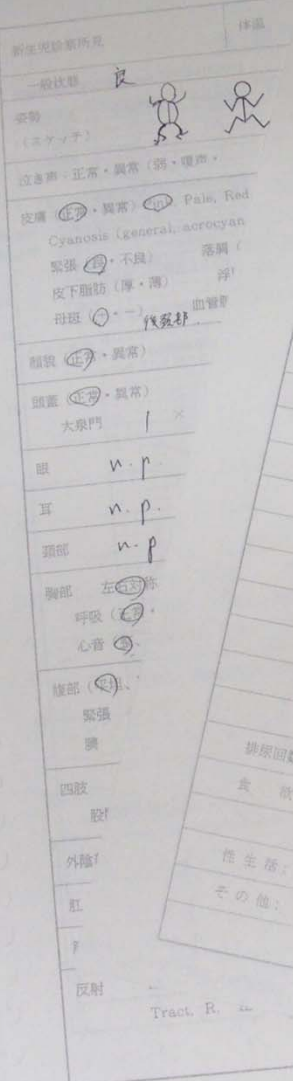 新生児診察所見
体温
一般状態 良
姿勢
(スケッチ)
泣き声:正常・異常(弱・嗄声・
皮膚(正常・異常) Pink Pale, Red
Cyanosis (general, acrocyan
緊張(良・不良) 落屑(
皮下脂肪(厚・薄) 浮
母斑(+・-) 血管
顔貌(正常・異常)
頭蓋(正常・異常)
大泉門 1 ×
眼 n.p.
耳 n.p.
頸部 n.p
胸部 左右対称
呼吸(正常・
心音
腹部(
緊張
臍
四肢
股
外陰
肛
反射
Tract. R.
排尿回数
食 欲
性生活;
その他;